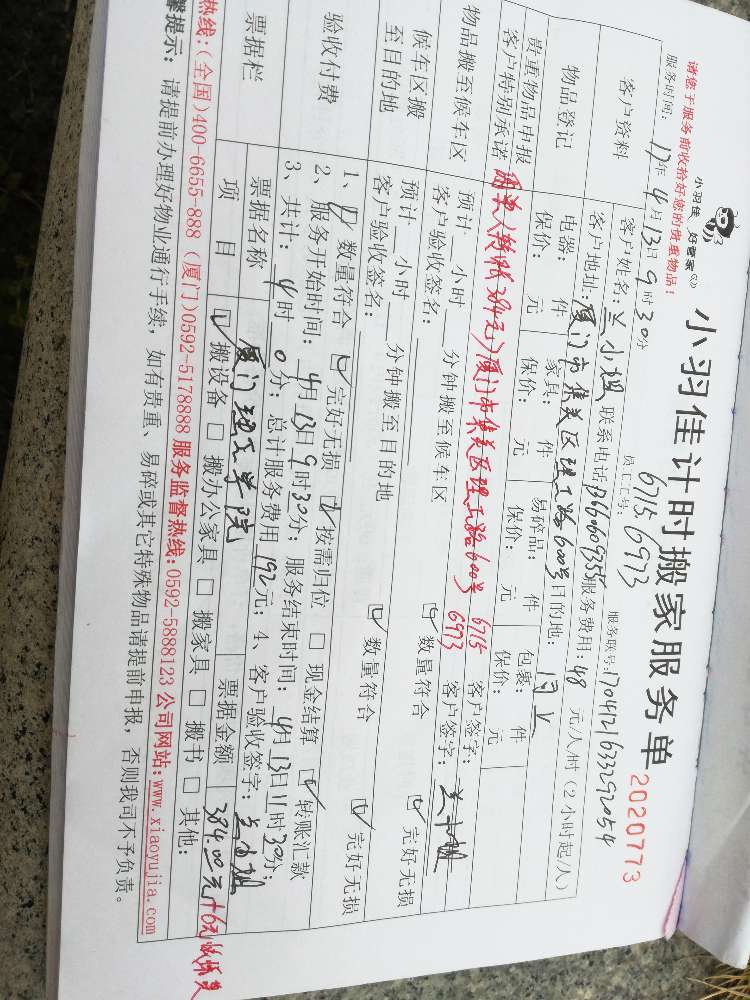 小羽佳 好管家
小羽佳计时搬家服务单
2020773
请您于服务前收拾好您的贵重物品!
员工工号: 6715 6973
服务时间: 17年4月13日9时30分
服务联号:1704121633292054
客户资料
客户姓名: 兰小姐 联系电话 服务费用: 48 元/小时(2小时起/人)
客户地址: 厦门市集美区理工路600号 目的地: 同上
物品登记
电器: 件 家具: 件 易碎品: 件 包裹: 件
保价: 元 保价: 元 保价: 元 保价: 元
贵重物品申报
客户特别承诺
384元)厦门市集美区理工路600号 6715 6973
客户签字:
物品搬至候车区
预计 小时 分钟搬至候车区
客户验收签名:
数量符合 完好无损
客户签字: 兰小姐
候车区搬至目的地
预计 小时 分钟搬至目的地
客户验收签名:
数量符合 完好无损
验收付费
1、数量符合 完好无损 按需归位 现金结算 转账汇款
2、服务开始时间: 4月13日9时30分; 服务结束时间: 4月13日11时30分;
3、共计: 4时0分; 总计服务费用 192元; 4、客户验收签字: 兰小姐
票据栏
票据名称 厦门理工学院 票据金额 384.00元+6元
项 目 搬设备 搬办公家具 搬家具 搬书 其他:
热线:(全国)400-6655-888 (厦门)0592-5178888 服务监督热线:0592-5888123 公司网站:www.xiaoyujia.com
馨提示: 请提前办理好物业通行手续,如有贵重、易碎或其它特殊物品请提前申报,否则我司不予负责。